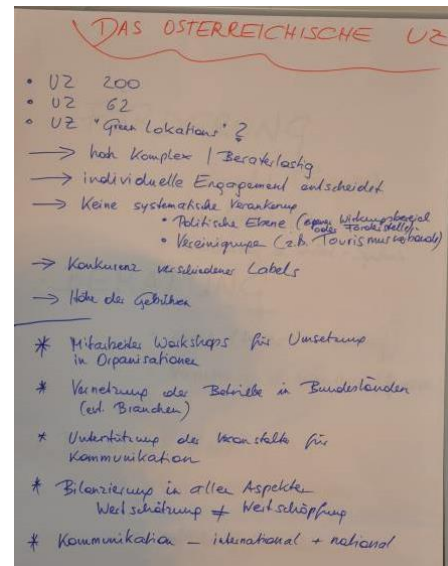 DAS ÖSTERREICHISCHE UZ
• UZ 200
• UZ 62
• UZ "Green Lokations" ?
→ hoh Komplex | Beraterlastig
→ individuelle Engagement entscheidet
→ Keine systematische Verankerung
• Politische Ebene (eigener Wirkungsbereich
oder Förderstellen
• Vereinigungen (z.B. Tourismusverbände)
→ Konkurenz verschiedener Labels
→ Höhe der Gebühren
* Mitarbeiter Workshops für Umsetzung
in Organisationen
* Vernetzung der Betriebe in Bundesländern
(evt. Branchen)
* Unterstützung der Veranstalter für
Kommunikation
* Bilanzierung in allen Aspekten
Wertschätzung ≠ Wertschöpfung
* Kommunikation – international + national